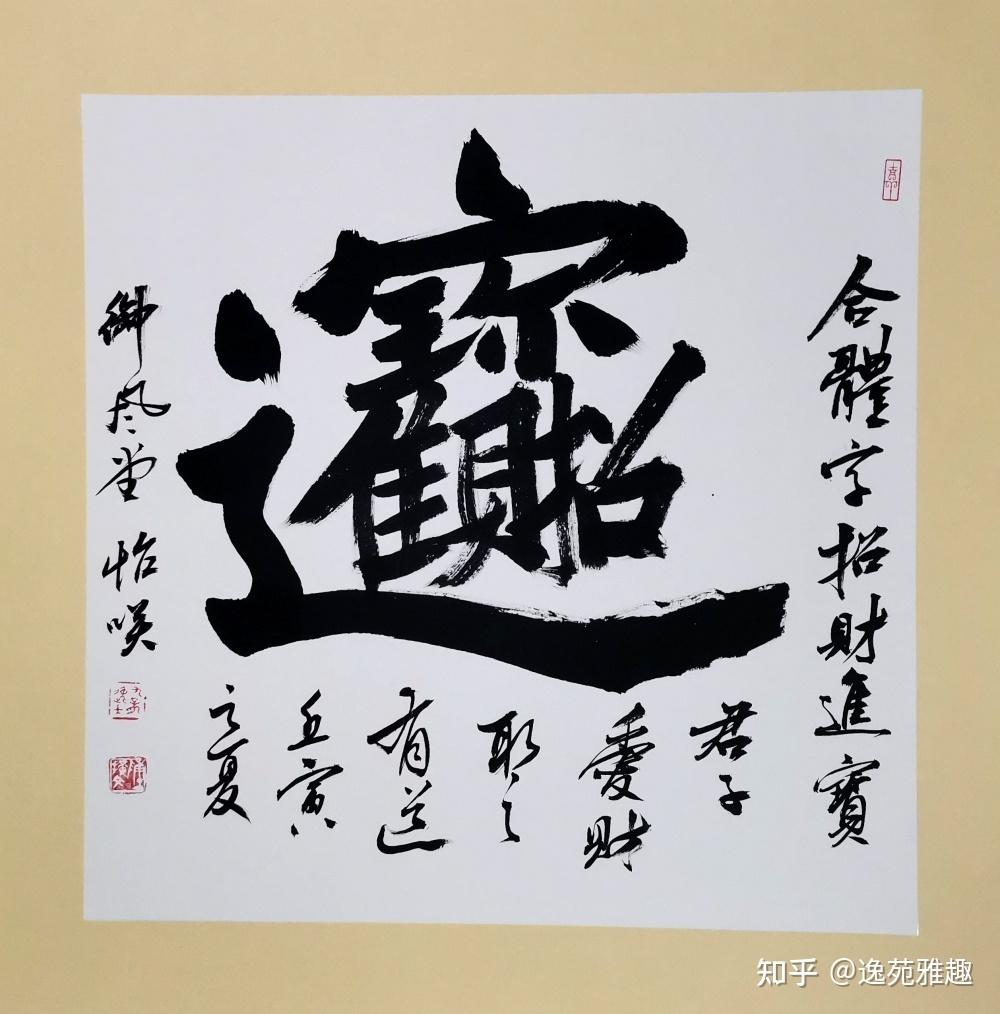 合體字招財進寶
招財進寶
君子
愛財
取之
有道
壬寅
之夏
御风堂 怡咲
知乎 @逸苑雅趣